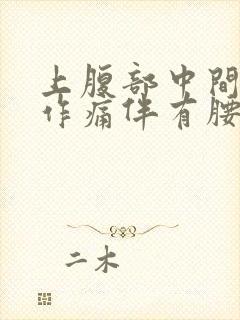 上腹部中間
作痛伴有腰
二木